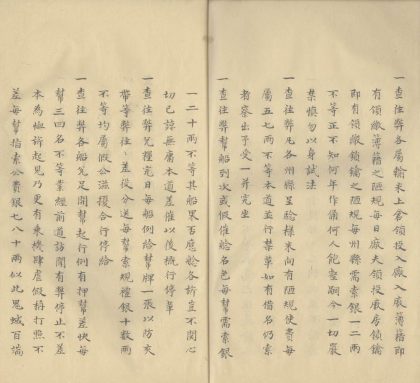 一查往弊各屬輸米上倉領入廒入廒簿籍即
有領繳簿籍之陋規每日廒夫領投廒房領鑰
即有領繳鎖鑰之陋規每州縣需索銀一二兩
不等正不知何年作俑何人飽壑嗣今一切嚴
禁慎勿以身試法
一查往弊凡各州縣呈驗樣米向有陋規使費每
屬五七兩不等本道並行禁革如有借名仍索
者察出予受一并究坐
一查往弊幫船到次或假催艙名色每幫需索銀
一二十兩不等其船果否應艙各訪豈不關心
切已諒無庸本道差催以後概行停革
一查往弊兌糧完日每船例給幫牌一張以防夾
帶等弊往差役分送每幫索規禮銀十數兩
不等均屬假公濟擾合行停給
一查往弊各船兌足開幫起行例有押幫差快每
幫三四名不等業經前道訪聞有弊停止不差
本為恤訴起見乃更有棄機肆虐假稱打照不
差每幫指索公費銀七八十兩似此鬼蜮百譎